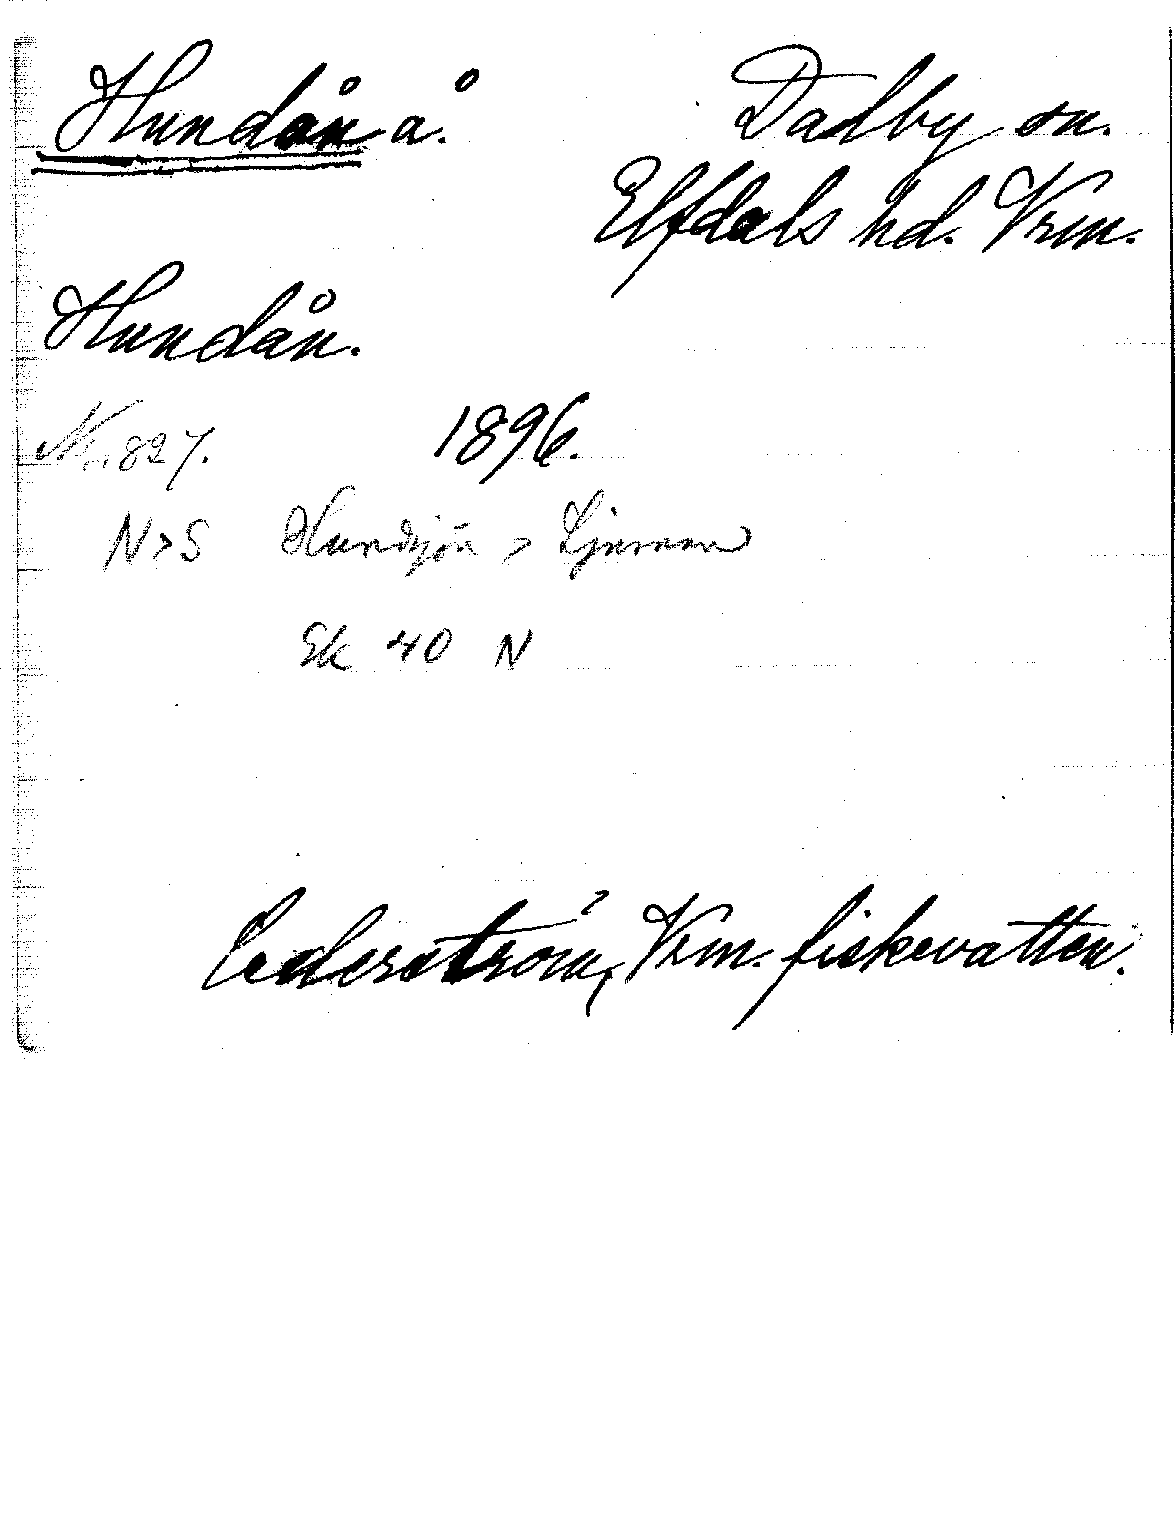 Hundån å. Dalby sn.
Elfdals hd. Vrm.
Hundån.
Nr. 827. 1896.
N>S Hundsjön >
Ek 40 N
Cederström, Vrm. fiskevatten.